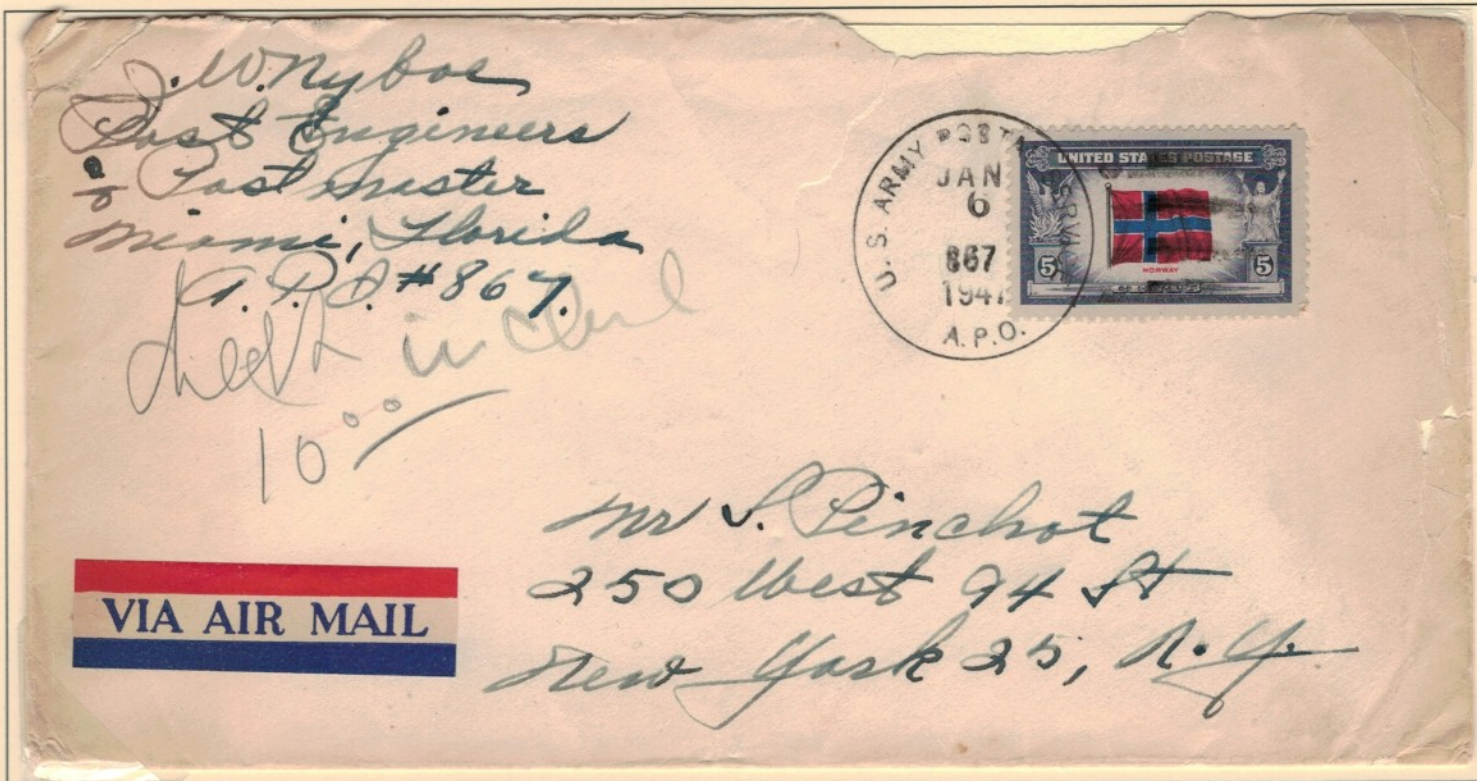 J. W. Nyboe
Post Engineers
c/o Postmaster
Miami, Florida
A.P.O. #867.
check inclosed
10⁰⁰
U.S. ARMY POSTAL SERVICE
JAN
6
867
1947
A.P.O.
UNITED STATES POSTAGE
5
NORWAY
5
VIA AIR MAIL
Mr S. Pinchot
250 West 94 St
New York 25, N.Y.